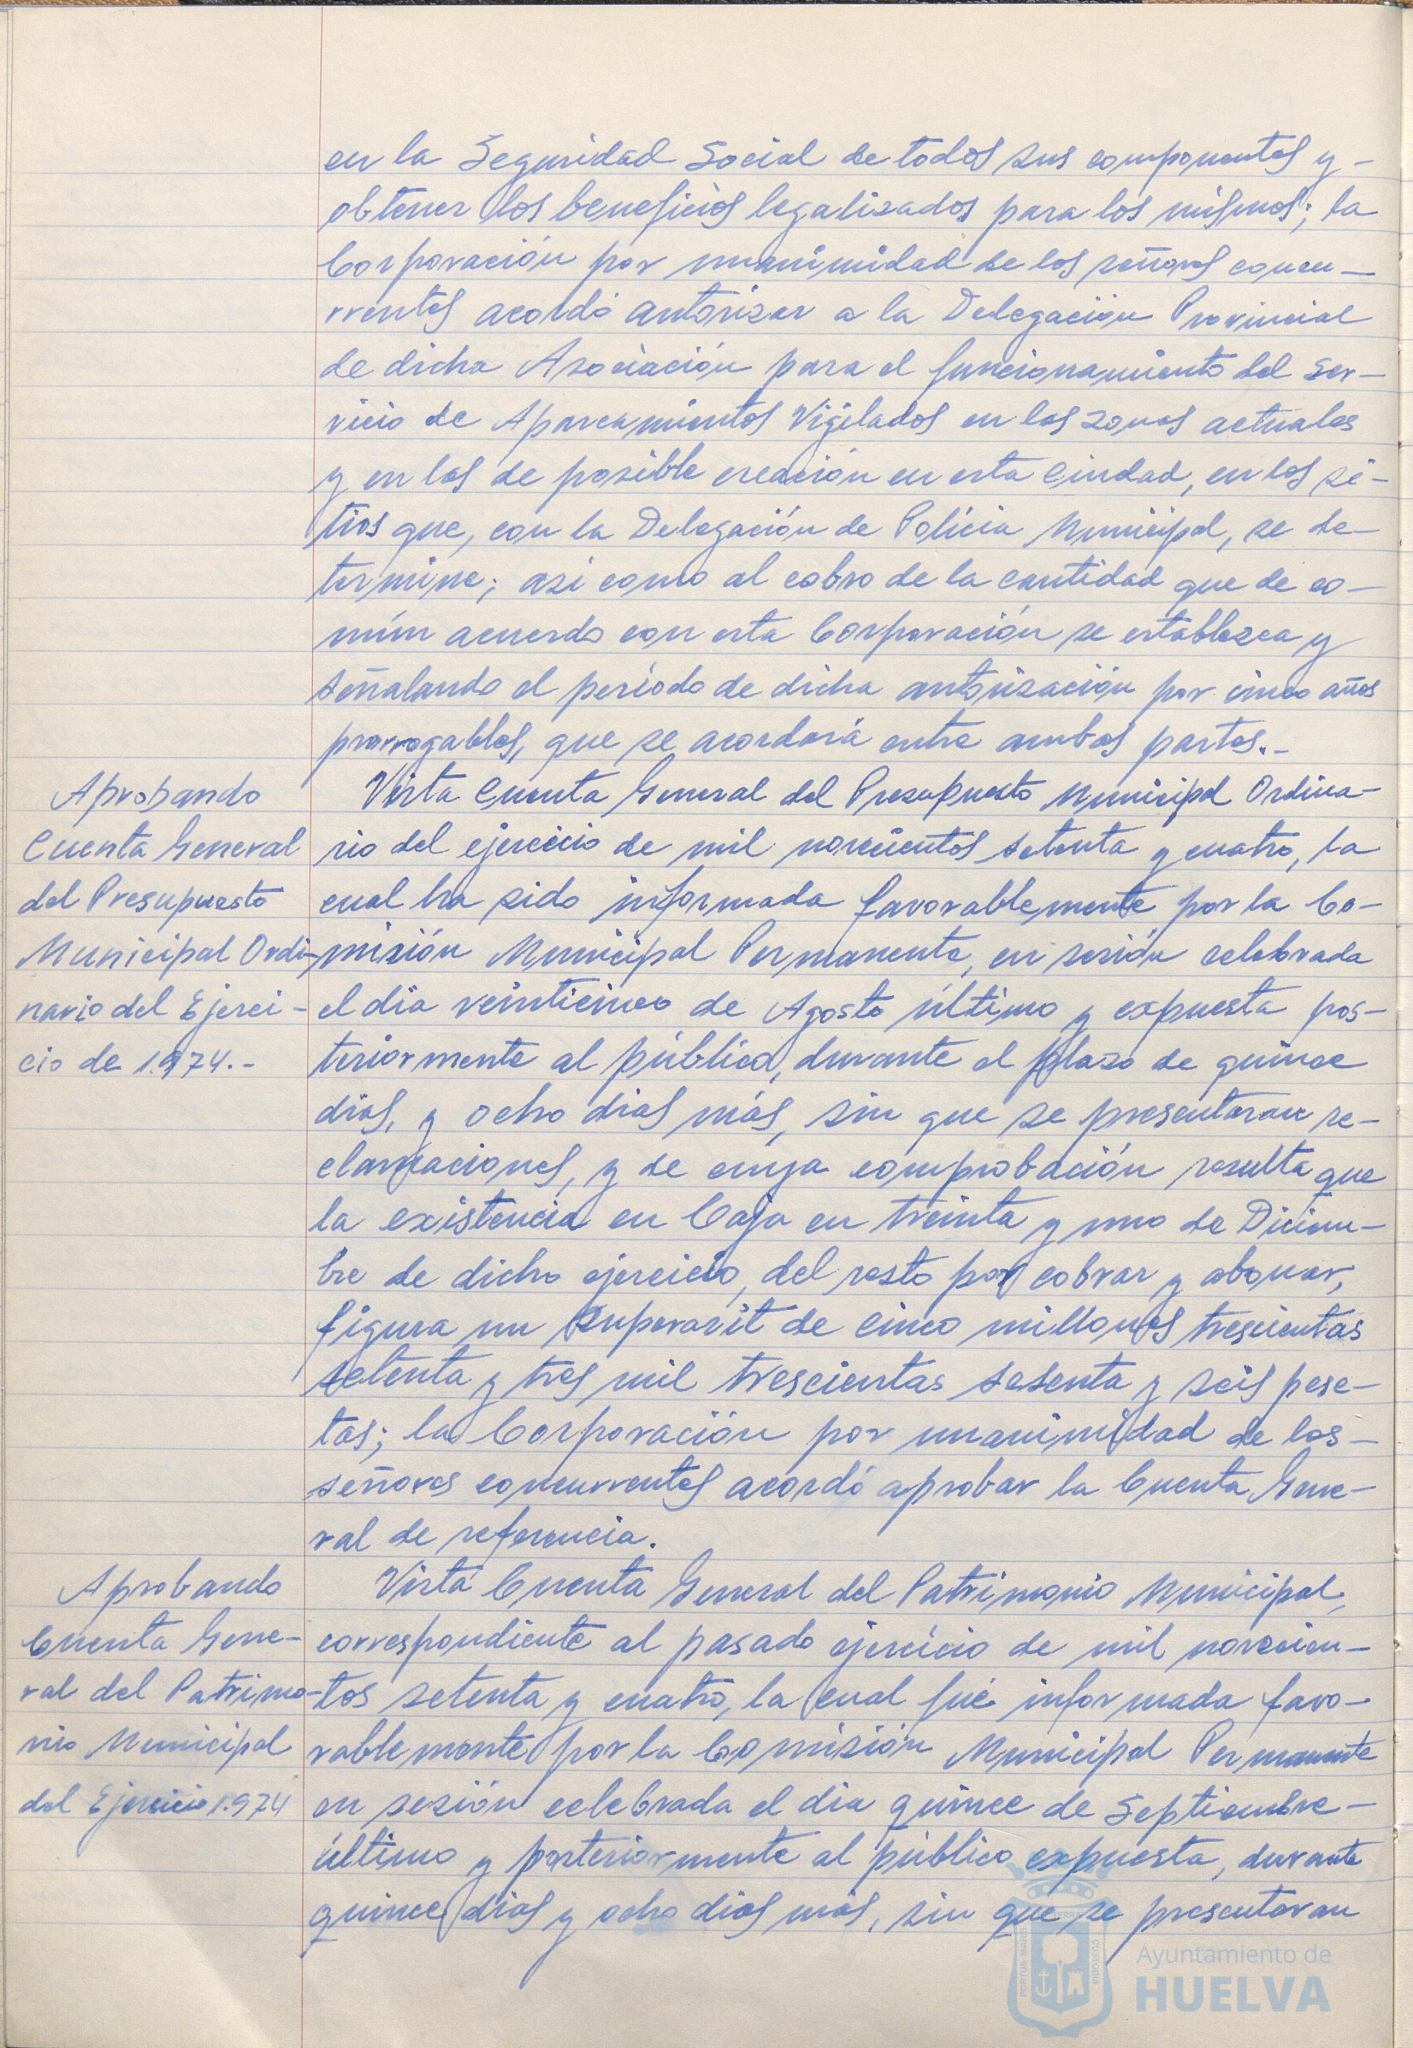 en la Seguridad Social de todos sus componentes y -
obtener los beneficios legalizados para los mismos; la
Corporación por unanimidad de los señores concu-
rrentes acordó autorizar a la Delegación Provincial
de dicha Asociación para el funcionamiento del Ser-
vicio de Aparcamientos Vigilados en las zonas actuales
y en las de posible creación en esta Ciudad, en los si-
tios que, con la Delegación de Policia Municipal, se de-
termine; asi como al cobro de la cantidad que de co-
mún acuerdo con esta Corporación se establezca y
señalando el período de dicha autorización por cinco años
prorrogables, que se acordará entre ambas partes.-
Aprobando
Cuenta General
del Presupuesto
Municipal Ordi-
nario del Ejerci-
cio de 1.974.-
Vista Cuenta General del Presupuesto Municipal Ordina-
rio del ejercicio de mil novecientos setenta y cuatro, la
cual ha sido informada favorablemente por la Co-
misión Municipal Permanente, en sesión celebrada
el dia veinticinco de Agosto último y expuesta pos-
teriormente al público, durante el plazo de quince
dias, y ocho dias más, sin que se presentaran re-
clamaciones, y de cuya comprobación resulta que
la existencia en Caja en treinta y uno de Diciem-
bre de dicho ejercicio, del resto por cobrar y abonar,
figura un Superavit de cinco millones trescientas
setenta y tres mil trescientas sesenta y seis pese-
tas; la Corporación por unanimidad de los -
señores concurrentes acordó aprobar la Cuenta Gene-
ral de referencia.
Aprobando
Cuenta Gene-
ral del Patrimo-
nio Municipal
del Ejercicio 1.974
Vista Cuenta General del Patrimonio Municipal,
correspondiente al pasado ejercicio de mil novecien-
tos setenta y cuatro, la cual fué informada favo-
rablemente por la Comisión Municipal Permanente
en sesión celebrada el dia quince de Septiembre -
último y posteriormente al público expuesta, durante
quince dias y ocho dias más, sin que se presentaran
PORTUS MARIS
CUSTODIA
Ayuntamiento de
HUELVA